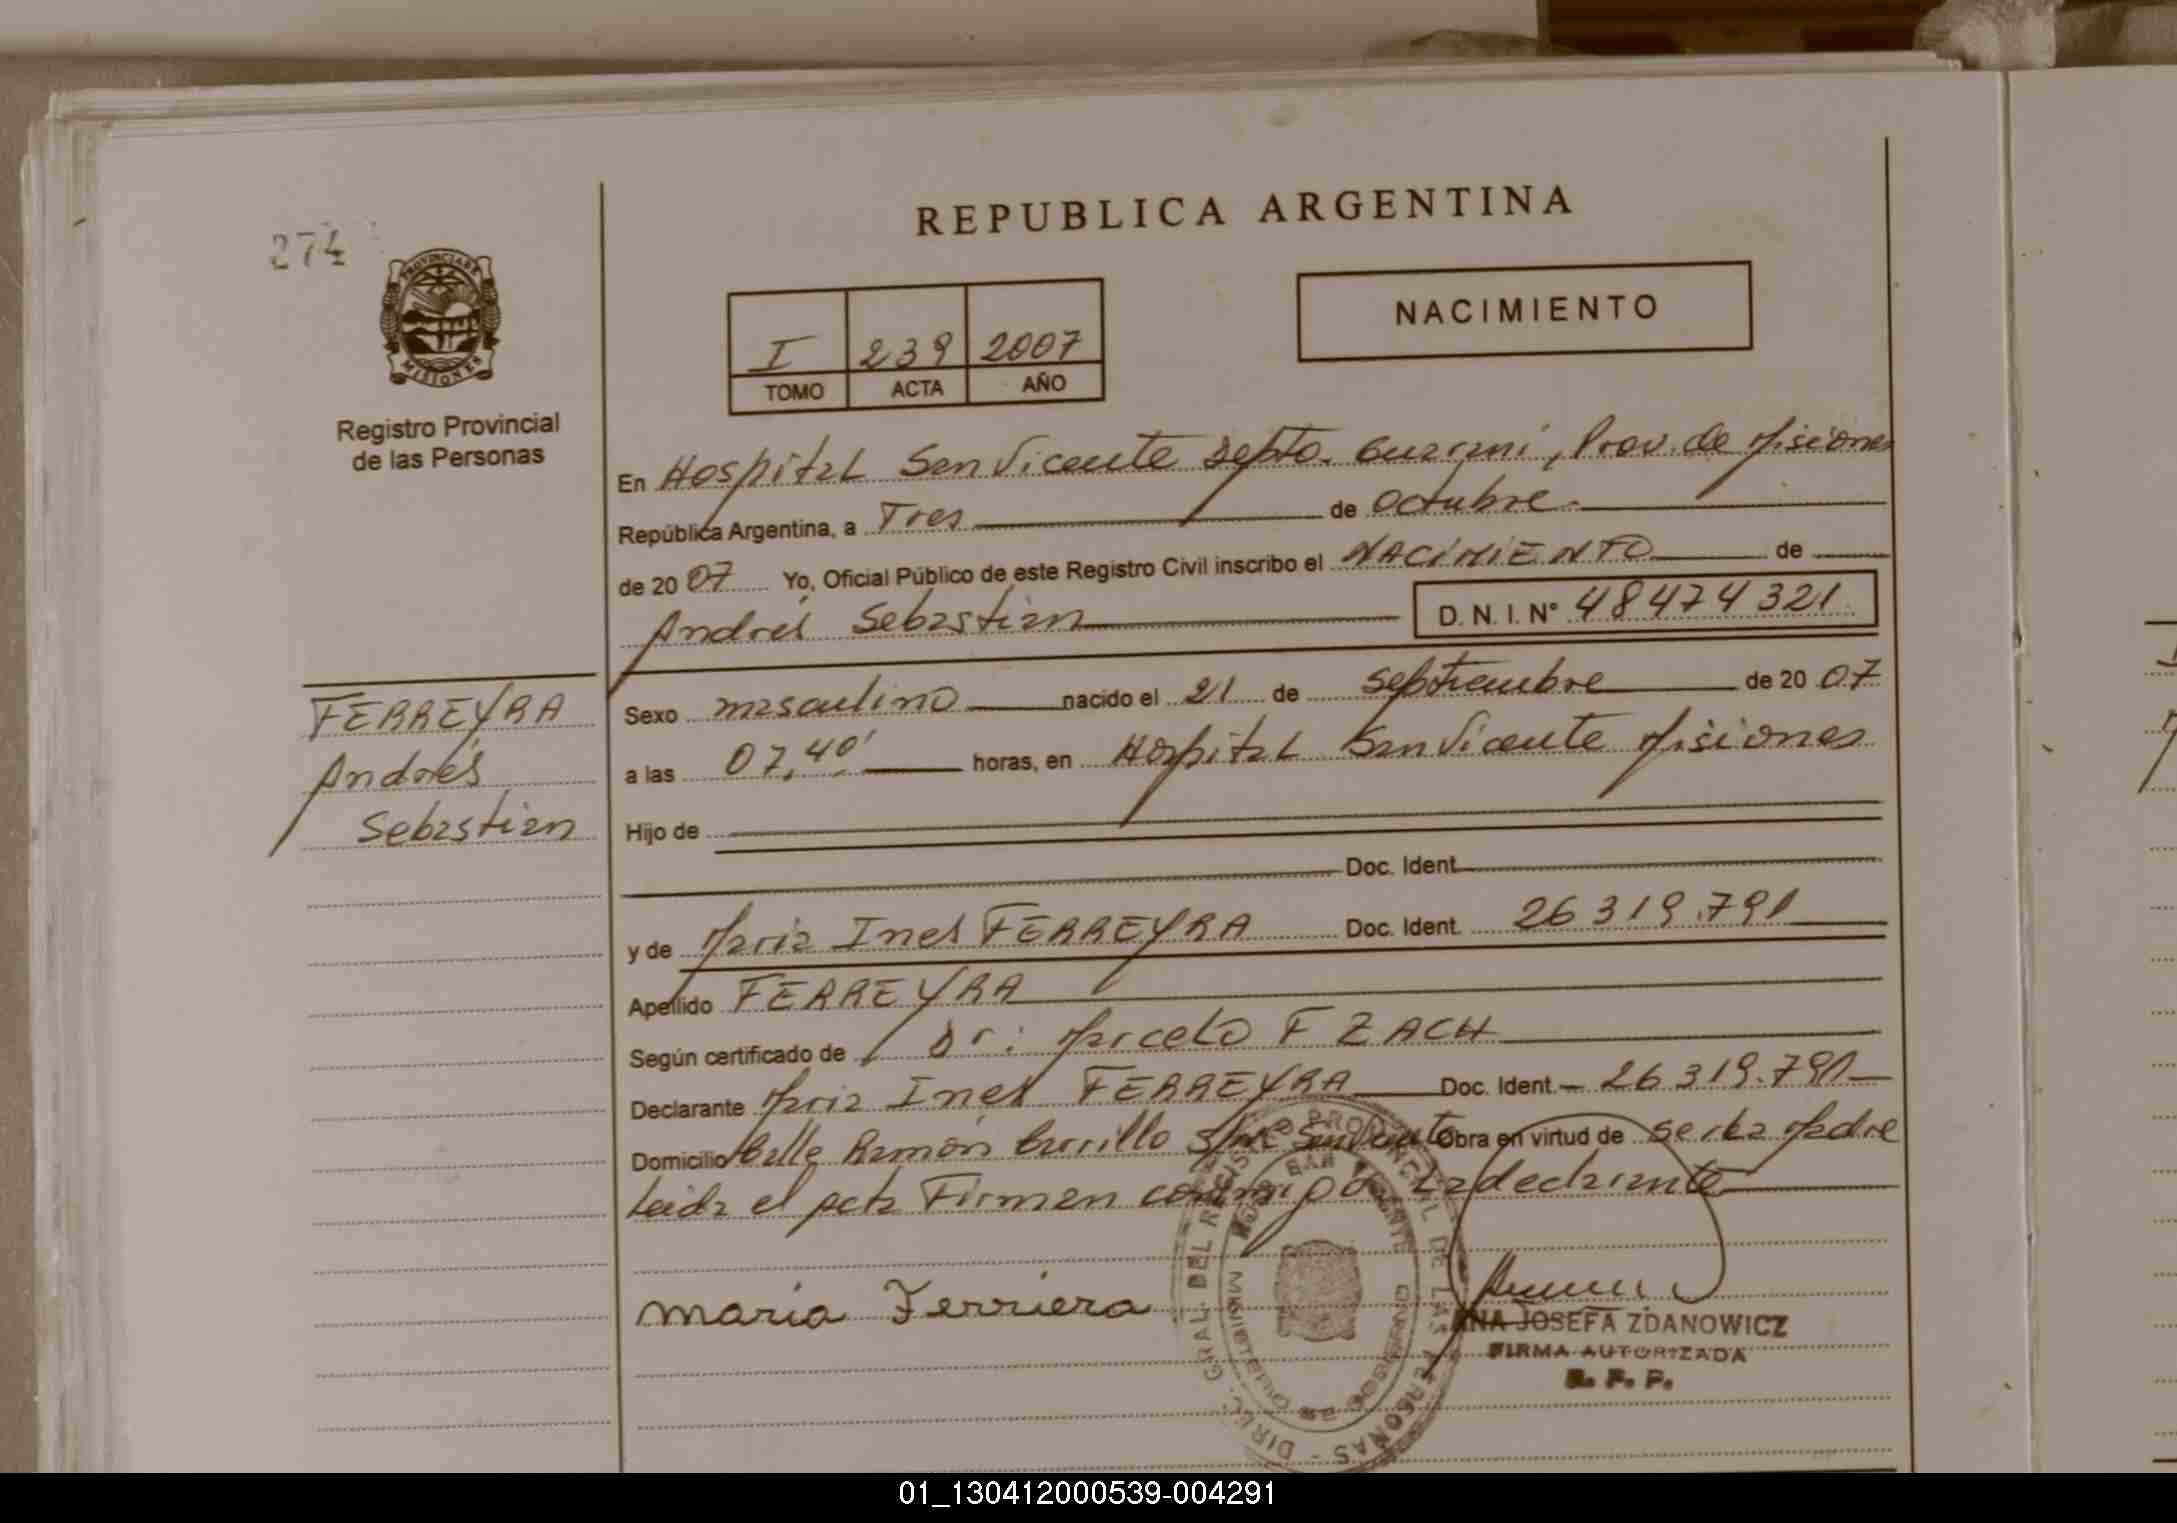 274
REPUBLICA ARGENTINA
PROVINCIA DE MISIONES
Registro Provincial
de las Personas
I 239 2007
TOMO ACTA AÑO
NACIMIENTO
En Hospital San Vicente Depto. Guarani, Prov. de Misiones
República Argentina, a Tres de Octubre.-
de 20 07 Yo, Oficial Público de este Registro Civil inscribo el NACIMIENTO de
Andrés Sebastian D. N. I. N° 48474321
FERREYRA
Andrés
Sebastian
Sexo masculino nacido el 21 de Septiembre de 20 07
a las 07,40' horas, en Hospital San Vicente Misiones
Hijo de
Doc. Ident.
y de Maria Ines FERREYRA Doc. Ident. 26 319.791
Apellido FERREYRA
Según certificado de Dr: Marcelo F ZACH
Declarante Maria Ines FERREYRA Doc. Ident. 26 319.791
Domicilio Calle Ramón Carrillo S/Nº San Vicente Obra en virtud de ser la Madre
Leida el acta Firman conmigo La declarante
Maria Ferriera
DIREC. GRAL. DEL REGISTRO PROVINCIAL DE LAS PERSONAS
MINISTERIO DE GOBIERNO
ANA JOSEFA ZDANOWICZ
FIRMA AUTORIZADA
R. P. P.
01_130412000539-004291